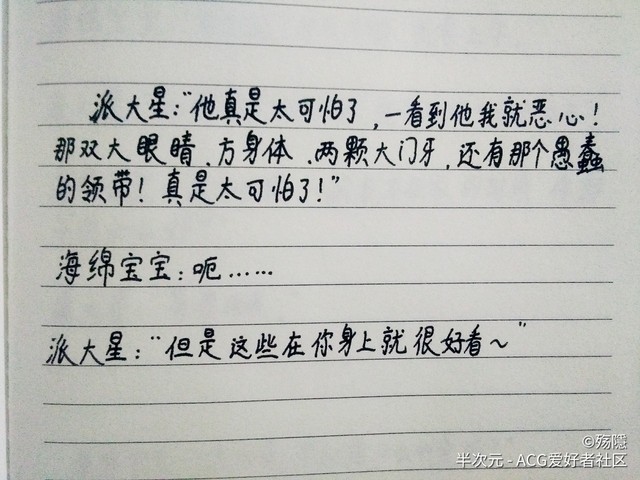 派大星:“他真是太可怕了,一看到他我就恶心!
那双大眼睛、方身体、两颗大门牙,还有那个愚蠢
的领带!真是太可怕了!”
海绵宝宝:呃……
派大星:“但是这些在你身上就很好看~”
©殇隱
半次元 - ACG爱好者社区